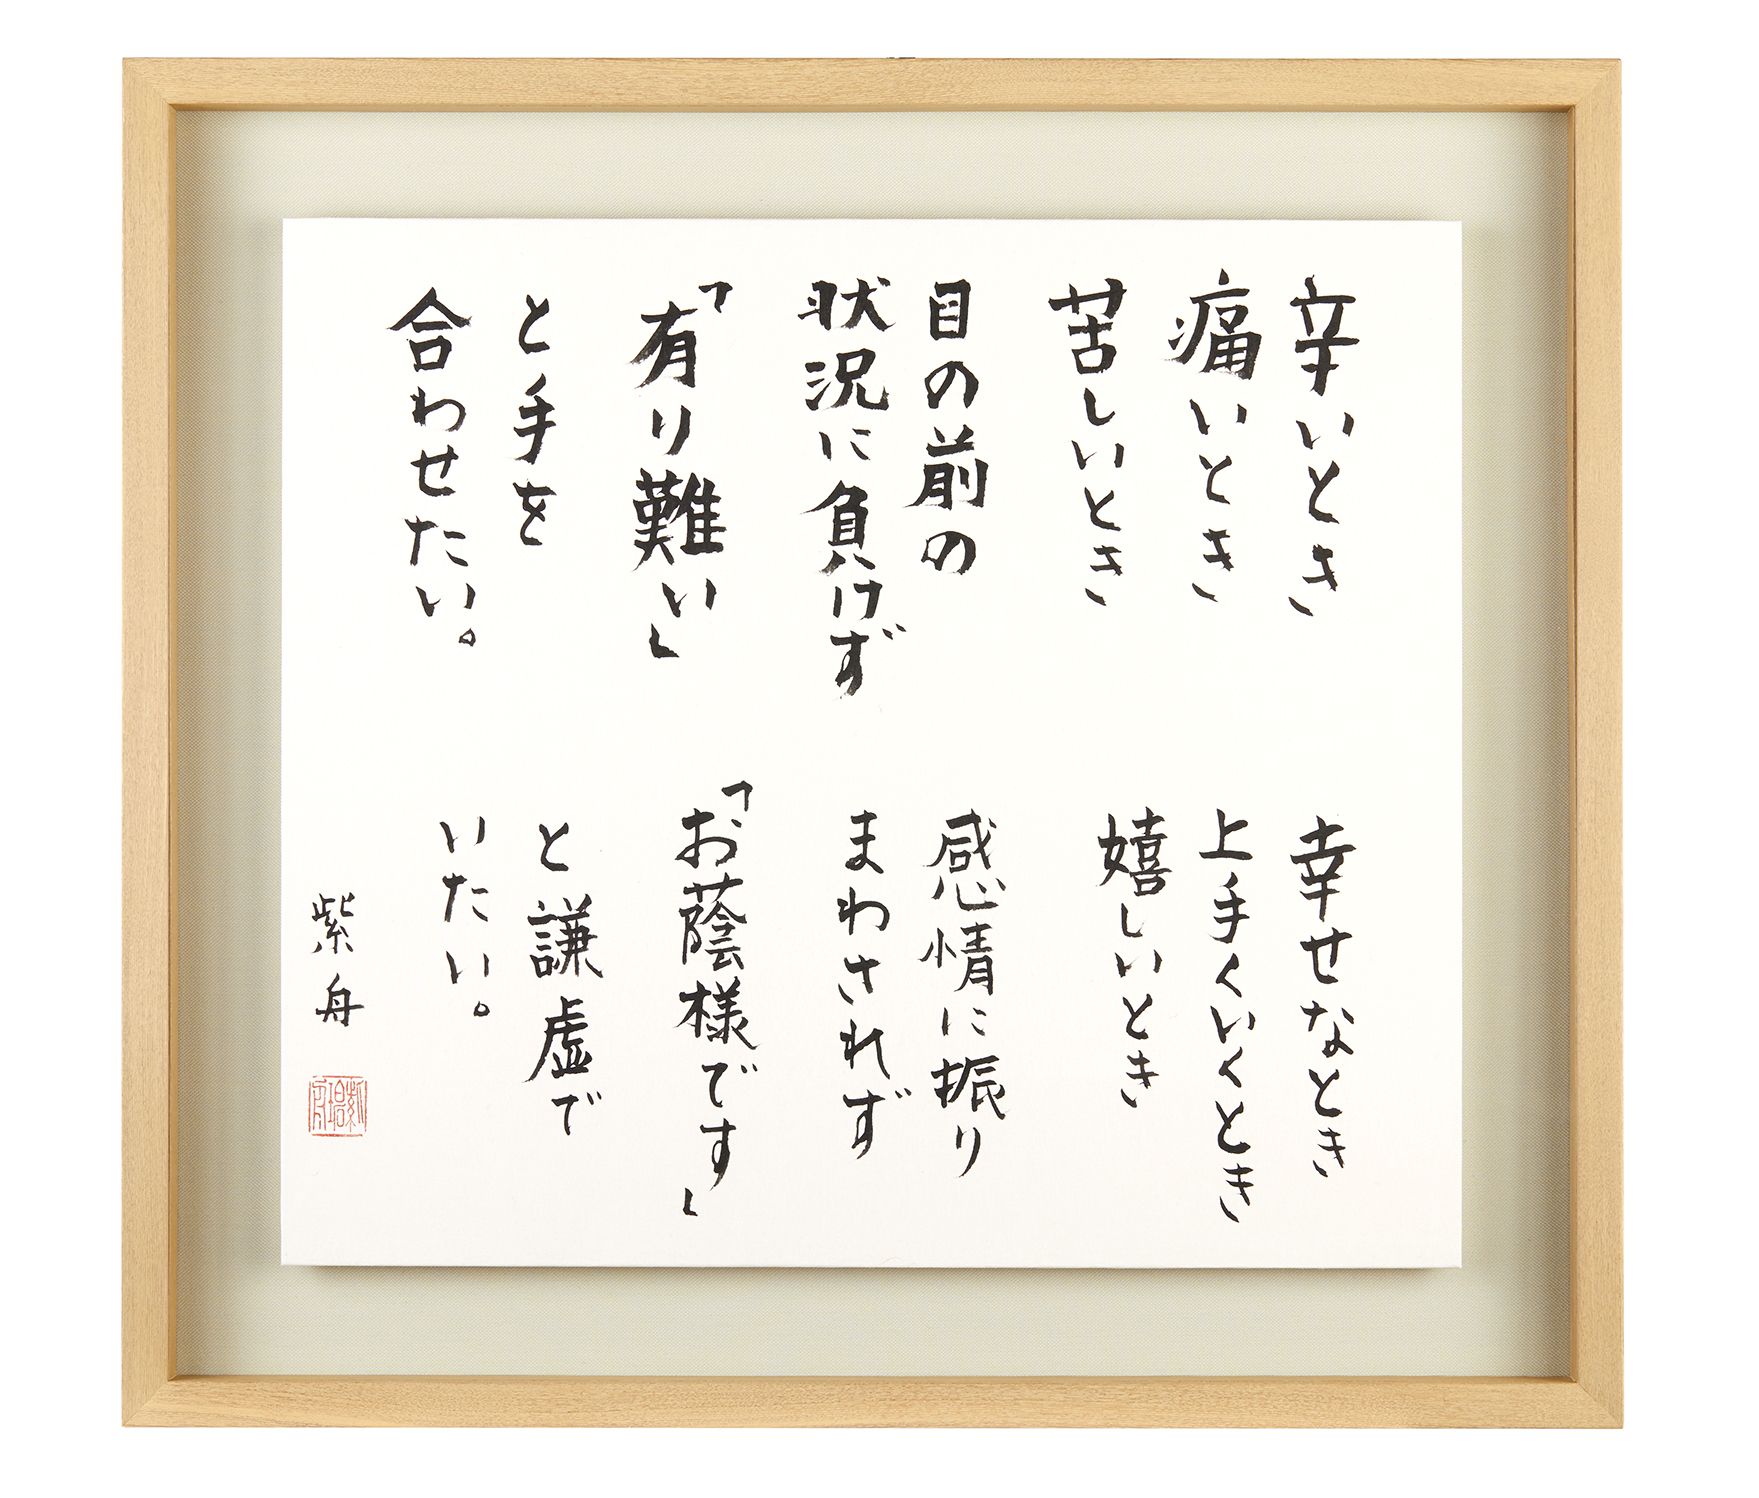 辛いとき
痛いとき
苦しいとき
目の前の
状況に負けず
「有り難い」
と手を
合わせたい。
幸せなとき
上手くいくとき
嬉しいとき
感情に振り
まわされず
「お蔭様です」
と謙虚で
いたい。
紫舟